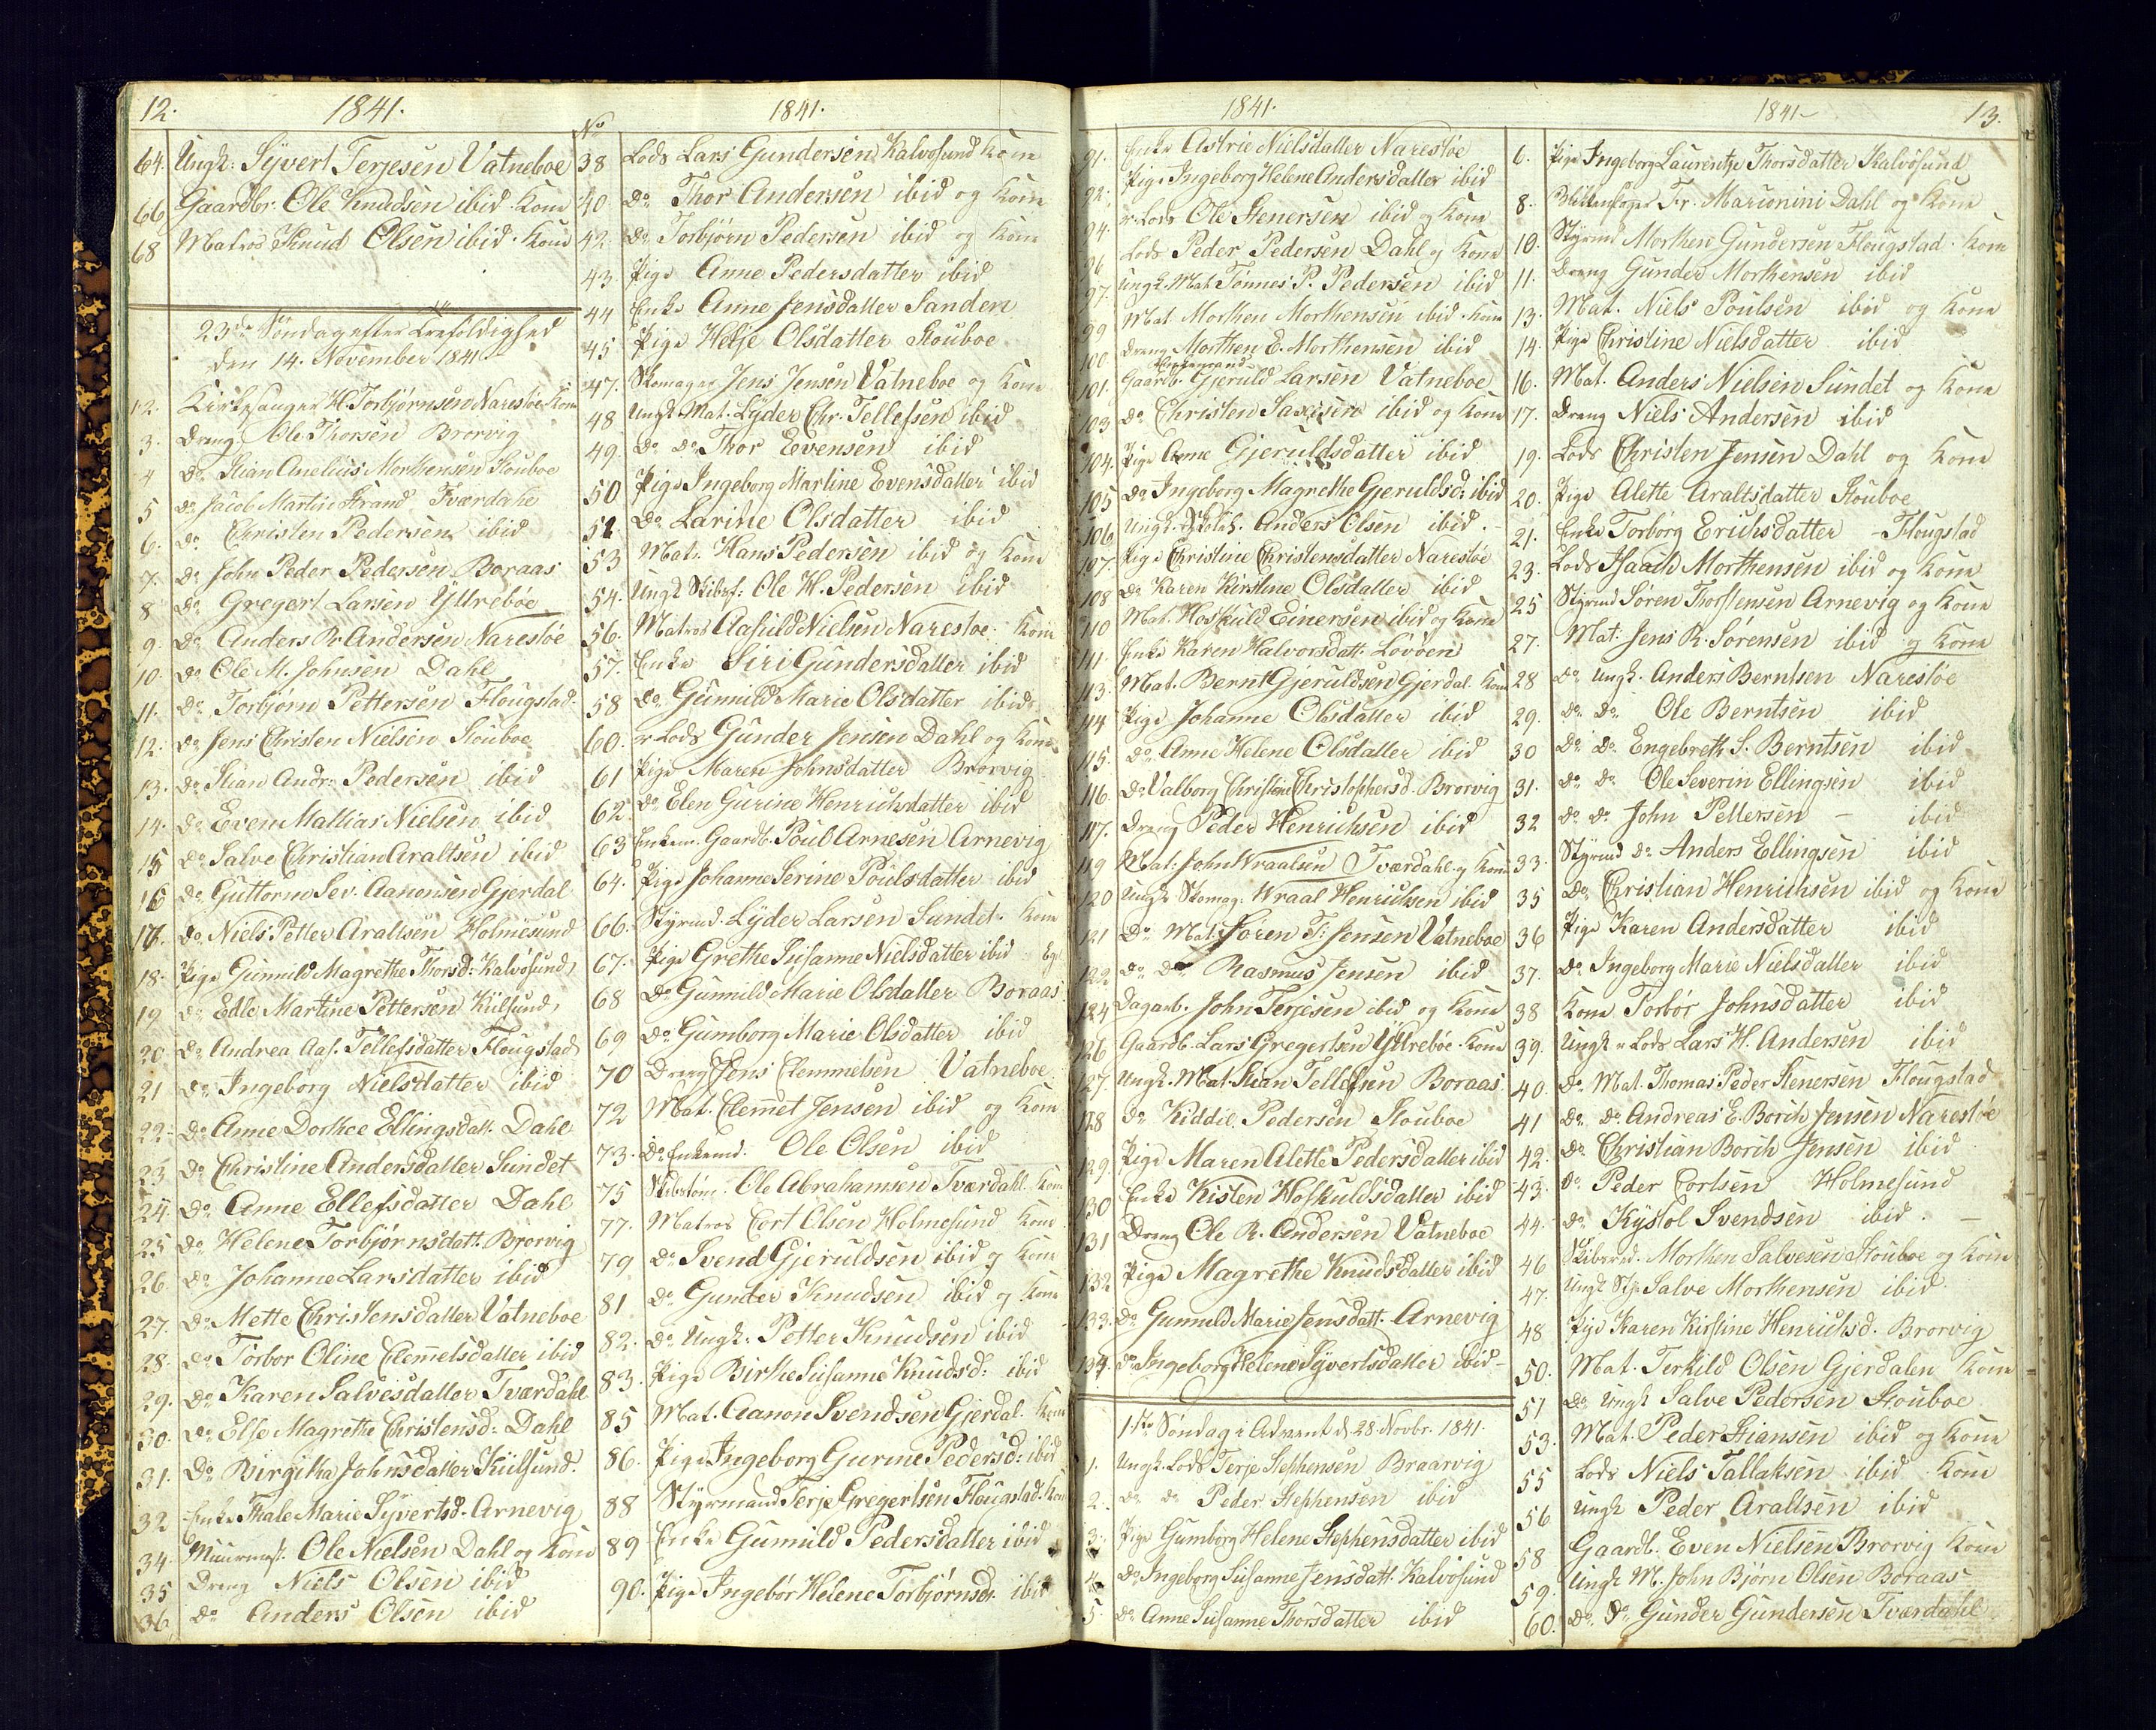 12.
1841.
64. Ungk: Syvert Terjesen Vatneboe
66 Gaardbr. Ole Knudsen ibid. Kone
68 Matros Knud Olsen ibid. Kone
23de Söndag efter Trefoldighed
den 14. November 1841.
12. Kirkesanger H. Torbjørnsen Narestøe Kone
3. Dreng Ole Thorsen Brorvig
4 do Stian Anelius Morthensen Stouboe
5 do Jacob Martin Strand Tværdahl
6. do Christen Pedersen ibid
7. do John Peder Pedersen Boraas
8 do Gregert Larsen Yttrebøe
9. do Anders R. Andersen Narestøe
10. do Ole M. Johnsen Dahl
11. do Torbjørn Pettersen Flougstad
12. do Jens Christen Nielsen Stouboe
13. do Stian Andr. Pedersen ibid
14. do Even Mathias Nielsen ibid
15 do Salve Christian Araltsen ibid
16 do Guttorm Sev. Aanonsen Gjerdal
17. do Niels Petter Araltsen Holmesund
18. Pige Gunnild Magrethe Thorsd: Kalvøsund
19 do Edle Martine Pettersen Kilsund
20. do Andrea Aas. Tellefsdatter Flougstad
21 do Ingeborg Nielsdatter ibid
22. do Anne Dorthea Ellingsdatt. Dahl
23. do Christine Andersdatter Sundet
24. do Anne Ellefsdatter Dahl
25 do Helene Torbjørnsdatt. Brorvig
26. do Johanne Larsdatter ibid
27. do Mette Christensdatter Vatneboe
28. do Torbor Oline Clemetsdatter ibid
29. do Karen Salvesdatter Tværdahl
30. do Else Magrethe Christensd: Dahl
31. do Birgitha Johnsdatter Kiilsund.
32 Enke Thale Marie Syvertsd. Arnevig
34. Muurmest. Ole Nielsen Dahl og Kone
35 Dreng Niels Olsen ibid
36. do Anders Olsen ibid
1841.
No
38 Lods Lars Gundersen Kalvøsund Kone
40. do Thor Andersen ibid og Kone
42. do Torbjørn Pedersen ibid og Kone
43. Pige Anne Pedersdatter ibid
44 Enke Anne Jensdatter Sanden
45 Pige Helje Olsdatter Stouboe
47. Skomager Jens Jensen Vatneboe og Kone
48 Ungk. Mat. Lyder Chr. Tellefsen ibid
49. do do Thor Evensen ibid
50 Pige Ingeborg Martine Evensdatter ibid
51. do Larine Olsdatter ibid
53 Mat. Hans Pedersen ibid og Kone
54. Ungk Skibsf: Ole H. Pedersen ibid
56. Matros Aasuld Nielsen Narestøe. Kone
57. Enke Siri Gundersdatter ibid
58 do Gunnild Marie Olsdatter ibid
60. r Lods Gunder Jensen Dahl og Kone
61 Pige Maren Johnsdatter Brorvig
62. do Elen Gurine Henrichsdatter ibid
63 Enkem. Gaardb. Poul Arnesen Arnevig
64. Pige Johanne Serine Poulsdatter ibid
66. Styrmd. Lyder Larsen Sundet. Kone
67. Pige Grethe Susanne Nielsdatter ibid
68 do Gunnild Marie Olsdatter Boraas
69 do Gumborg Marie Olsdatter ibid
70 Dreng Jens Clemmetsen Vatneboe
72 Mat. Clemet Jensen ibid og Kone
73. do Enkemd. Ole Olsen ibid
75 Ole Abrahamsen Tværdahl. Kone
77. Matros Cort Olsen Holmesund Kone
79 do Svend Gjeruldsen ibid og Kone
81 do Gunder Knudsen ibid og Kone
82. do Ungk. Petter Knudsen ibid
83. Pige Birthe Susanne Knudsd: ibid
85 Mat. Aanon Svendsen Gjerdal. Kone
86. Pige Ingeborg Gurine Pedersd: ibid
88 Styrmand Terje Gregertsen Flougstad. Kone
89 Enke Gunnild Pedersdatter ibid
90. Pige Ingebor Helene Torbjørnsd. ibid
1841.
91. Enke Astrie Nielsdatter Narestøe
92. Pige Ingeborg Helene Andersdatter ibid
94. r. Lods Ole Stenersen ibid og Kone
96 Lods Peder Pedersen Dahl og Kone
97. Ungk. Mat. Tønnes P. Pedersen ibid
99 Mat. Morthen Morthensen ibid. Kone
100. Dreng Morthen E. Morthensen ibid
Enkemand
101. Gaardb. Gjeruld Larsen Vatneboe
103 do Christen Saxesen ibid og Kone
104. Pige Anne Gjeruldsdatter ibid
105 do Ingeborg Magrethe Gjeruldsd: ibid
106 Ungk. Anders Olsen ibid.
107. Pige Christine Christensdatter Narestøe
108 do Karen Kirstine Olsdatter ibid
110 Mat. Hoskuld Einersen ibid og Kone
111. Enke Karen Halvorsdatt. Løvøen
113. Mat. Bernt Gjeruldsen Gjerdal. Kone
114 Pige Johanne Olsdatter ibid
115. do Anne Helene Olsdatter ibid
116. do Valborg Christine Christophersd. Brorvig
117. Dreng Peder Henrichsen ibid
119 Mat. John Wraalsen Tværdahl og Kone
120 Ungk Skomag. Wraal Henrichsen ibid
121 do Mat. Søren T. Jensen Vatneboe
122 do do Rasmus Jensen ibid
124 Dagarb. John Terjesen ibid og Kone
126 Gaardb. Lars Gregertsen Yttrebøe. Kone
127. Ungk. Mat. Stian Tellefsen Boraas
128 do Kiddil Pedersen Stouboe
129. Pige Maren Alette Pedersdatter ibid
130 Enke Kisten Hoskuldsdatter ibid
131 Dreng Ole R. Andersen Vatneboe
132 Pige Magrethe Knudsdatter ibid
133. do Gunnild Marie Jensdatt. Arnevig
134. do Ingeborg Helene Syvertsdatter ibid
1ste Søndag i Advent d. 28. Novbr. 1841.
1. Ungk. Lods Terje Stephensen Braarvig
2. do do Peder Stephensen ibid
3. Pige Gumborg Helene Stephensdatter ibid
4. do Ingeborg Susanne Jensdatt. Kalvøsund
5. do Anne Susanne Thorsdatter ibid
1841
13.
6. Pige Ingeborg Laurentze Thorsdatter Kalvøsund
8. Fr. Marionini Dahl og Kone
10. Styrmd Morthen Gundersen Flougstad. Kone
11. Dreng Gunder Morthensen ibid
13. Mat. Niels Poulsen ibid og Kone
14. Pige Christine Nielsdatter ibid
16. Mat. Anders Nielsen Sundet og Kone
17. Dreng Niels Andersen ibid
19. Lods Christen Jensen Dahl og Kone
20. Pige Alette Araltsdatter Stouboe
21. Enke Torborg Erichsdatter - Flougstad
23. Lods Isaach Morthensen ibid og Kone
25 Styrmd Søren Thorstensen Arnevig og Kone
27. Mat: Jens R. Sørensen ibid og Kone
28 do Ungk. Anders Berntsen Narestøe
29. do do Ole Berntsen ibid
30 do do Engebreth S. Berntsen ibid
31. do do Ole Severin Ellingsen ibid
32 do do John Pettersen - ibid
33. Styrmd do Anders Ellingsen ibid
35 do Christian Henrichsen ibid og Kone
36 Pige Karen Andersdatter ibid
37. do Ingeborg Marie Nielsdatter ibid
38 Kone Torbor Johnsdatter ibid
39. Ungk r Lods Lars H. Andersen ibid
40. do Mat. Thomas Peder Stenersen Flougstad
41 do do Andreas E. Borch Jensen Narestøe
42. do Christian Borch Jensen ibid
43. do Peder Cortsen Holmesund
44. do Kystol Svendsen ibid.
46 Skibsrd. Morthen Salvesen Stouboe og Kone
47. Ungk Sty. Salve Morthensen ibid.
48 Pige Karen Kirstine Henrichsd. Brorvig
50. Mat. Terkild Olsen Gjerdalen Kone
51 do Ungk Salve Pedersen Stouboe
53. Mat. Peder Stiansen ibid og Kone
55 Lods Niels Tallaksen ibid Kone
56 Ungk Peder Araltsen ibid
58 Gaardb. Even Nielsen Brorvig Kone
59. Ungk M. John Bjørn Olsen Boraas
60. do do Gunder Gundersen Tværdahl